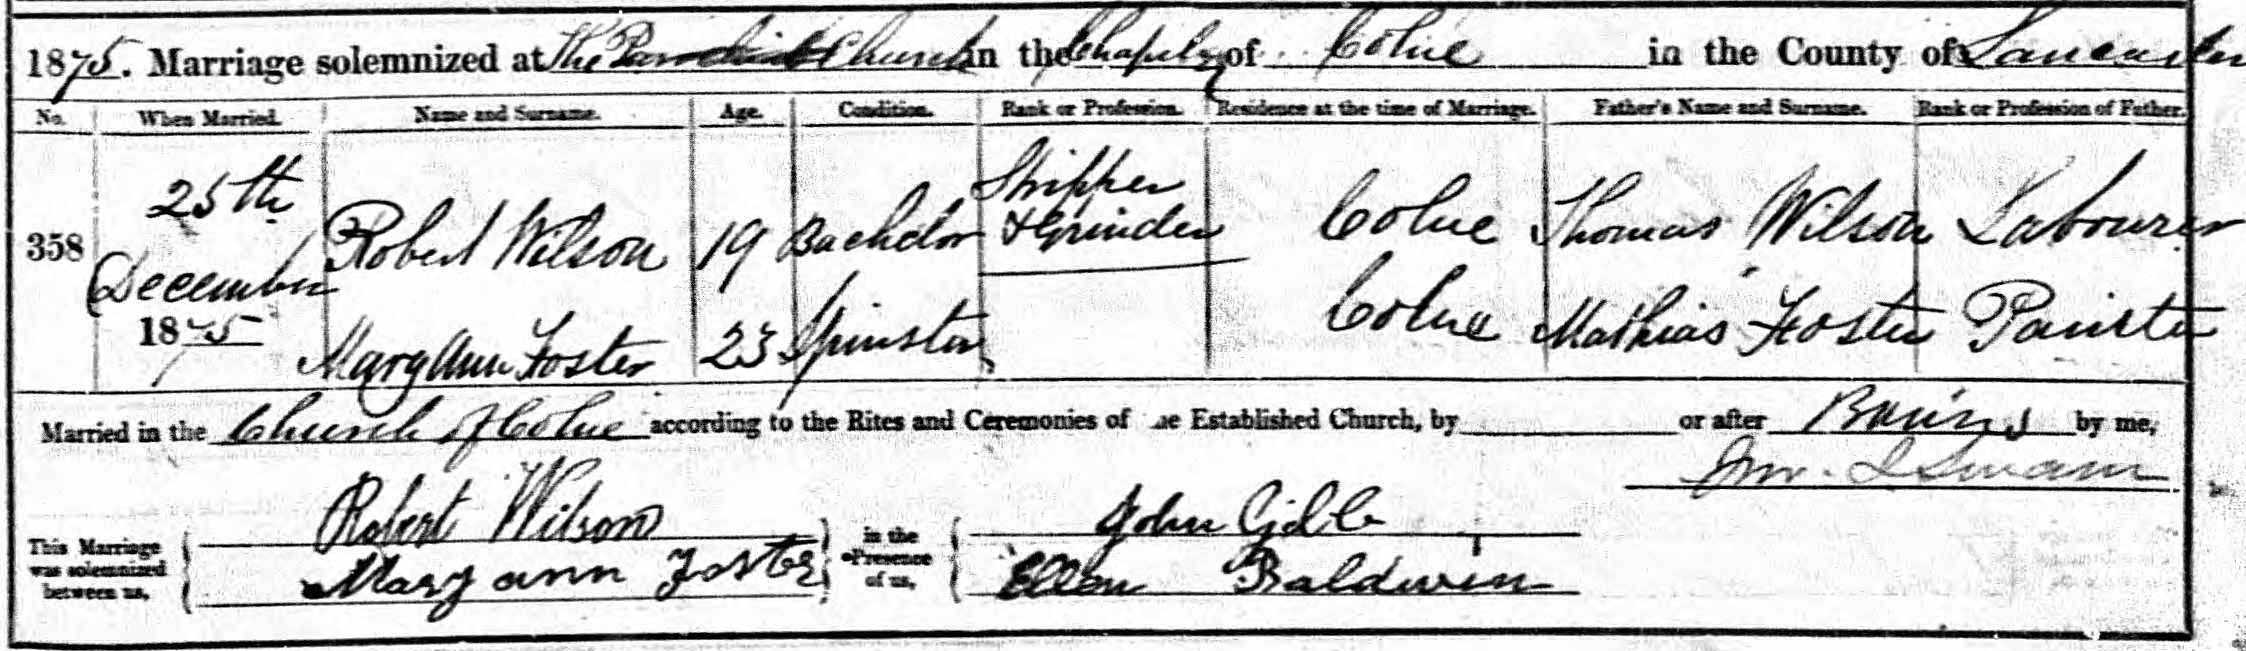 1875. Marriage solemnized at The Parochial Church in the Chapelry of Colne in the County of Lancaster
No. When Married. Name and Surname. Age. Condition. Rank or Profession. Residence at the time of Marriage. Father's Name and Surname. Rank or Profession of Father.
358 25th December 1875 Robert Wilson 19 Bachelor Stripper & Grinder Colne Thomas Wilson Labourer
Mary Ann Foster 23 Spinster Colne Mathias Foster Painter
Married in the Church of Colne according to the Rites and Ceremonies of the Established Church, by or after Banns by me,
This Marriage was solemnized between us, Robert Wilson in the Presence of us, John
Mary ann Foster Ellen Baldwin